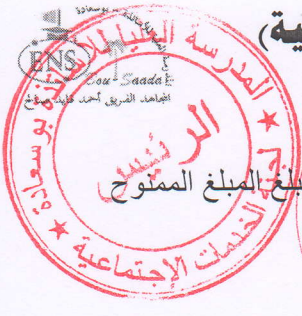 ية)
بوسعادة
ENS
Bou Saada
المجاهد الفريق أحمد قايد صالح
المدرسة العليا للأساتذة بوسعادة
لجنة الخدمات الإجتماعية
الرئيس
المبلغ الممنوح